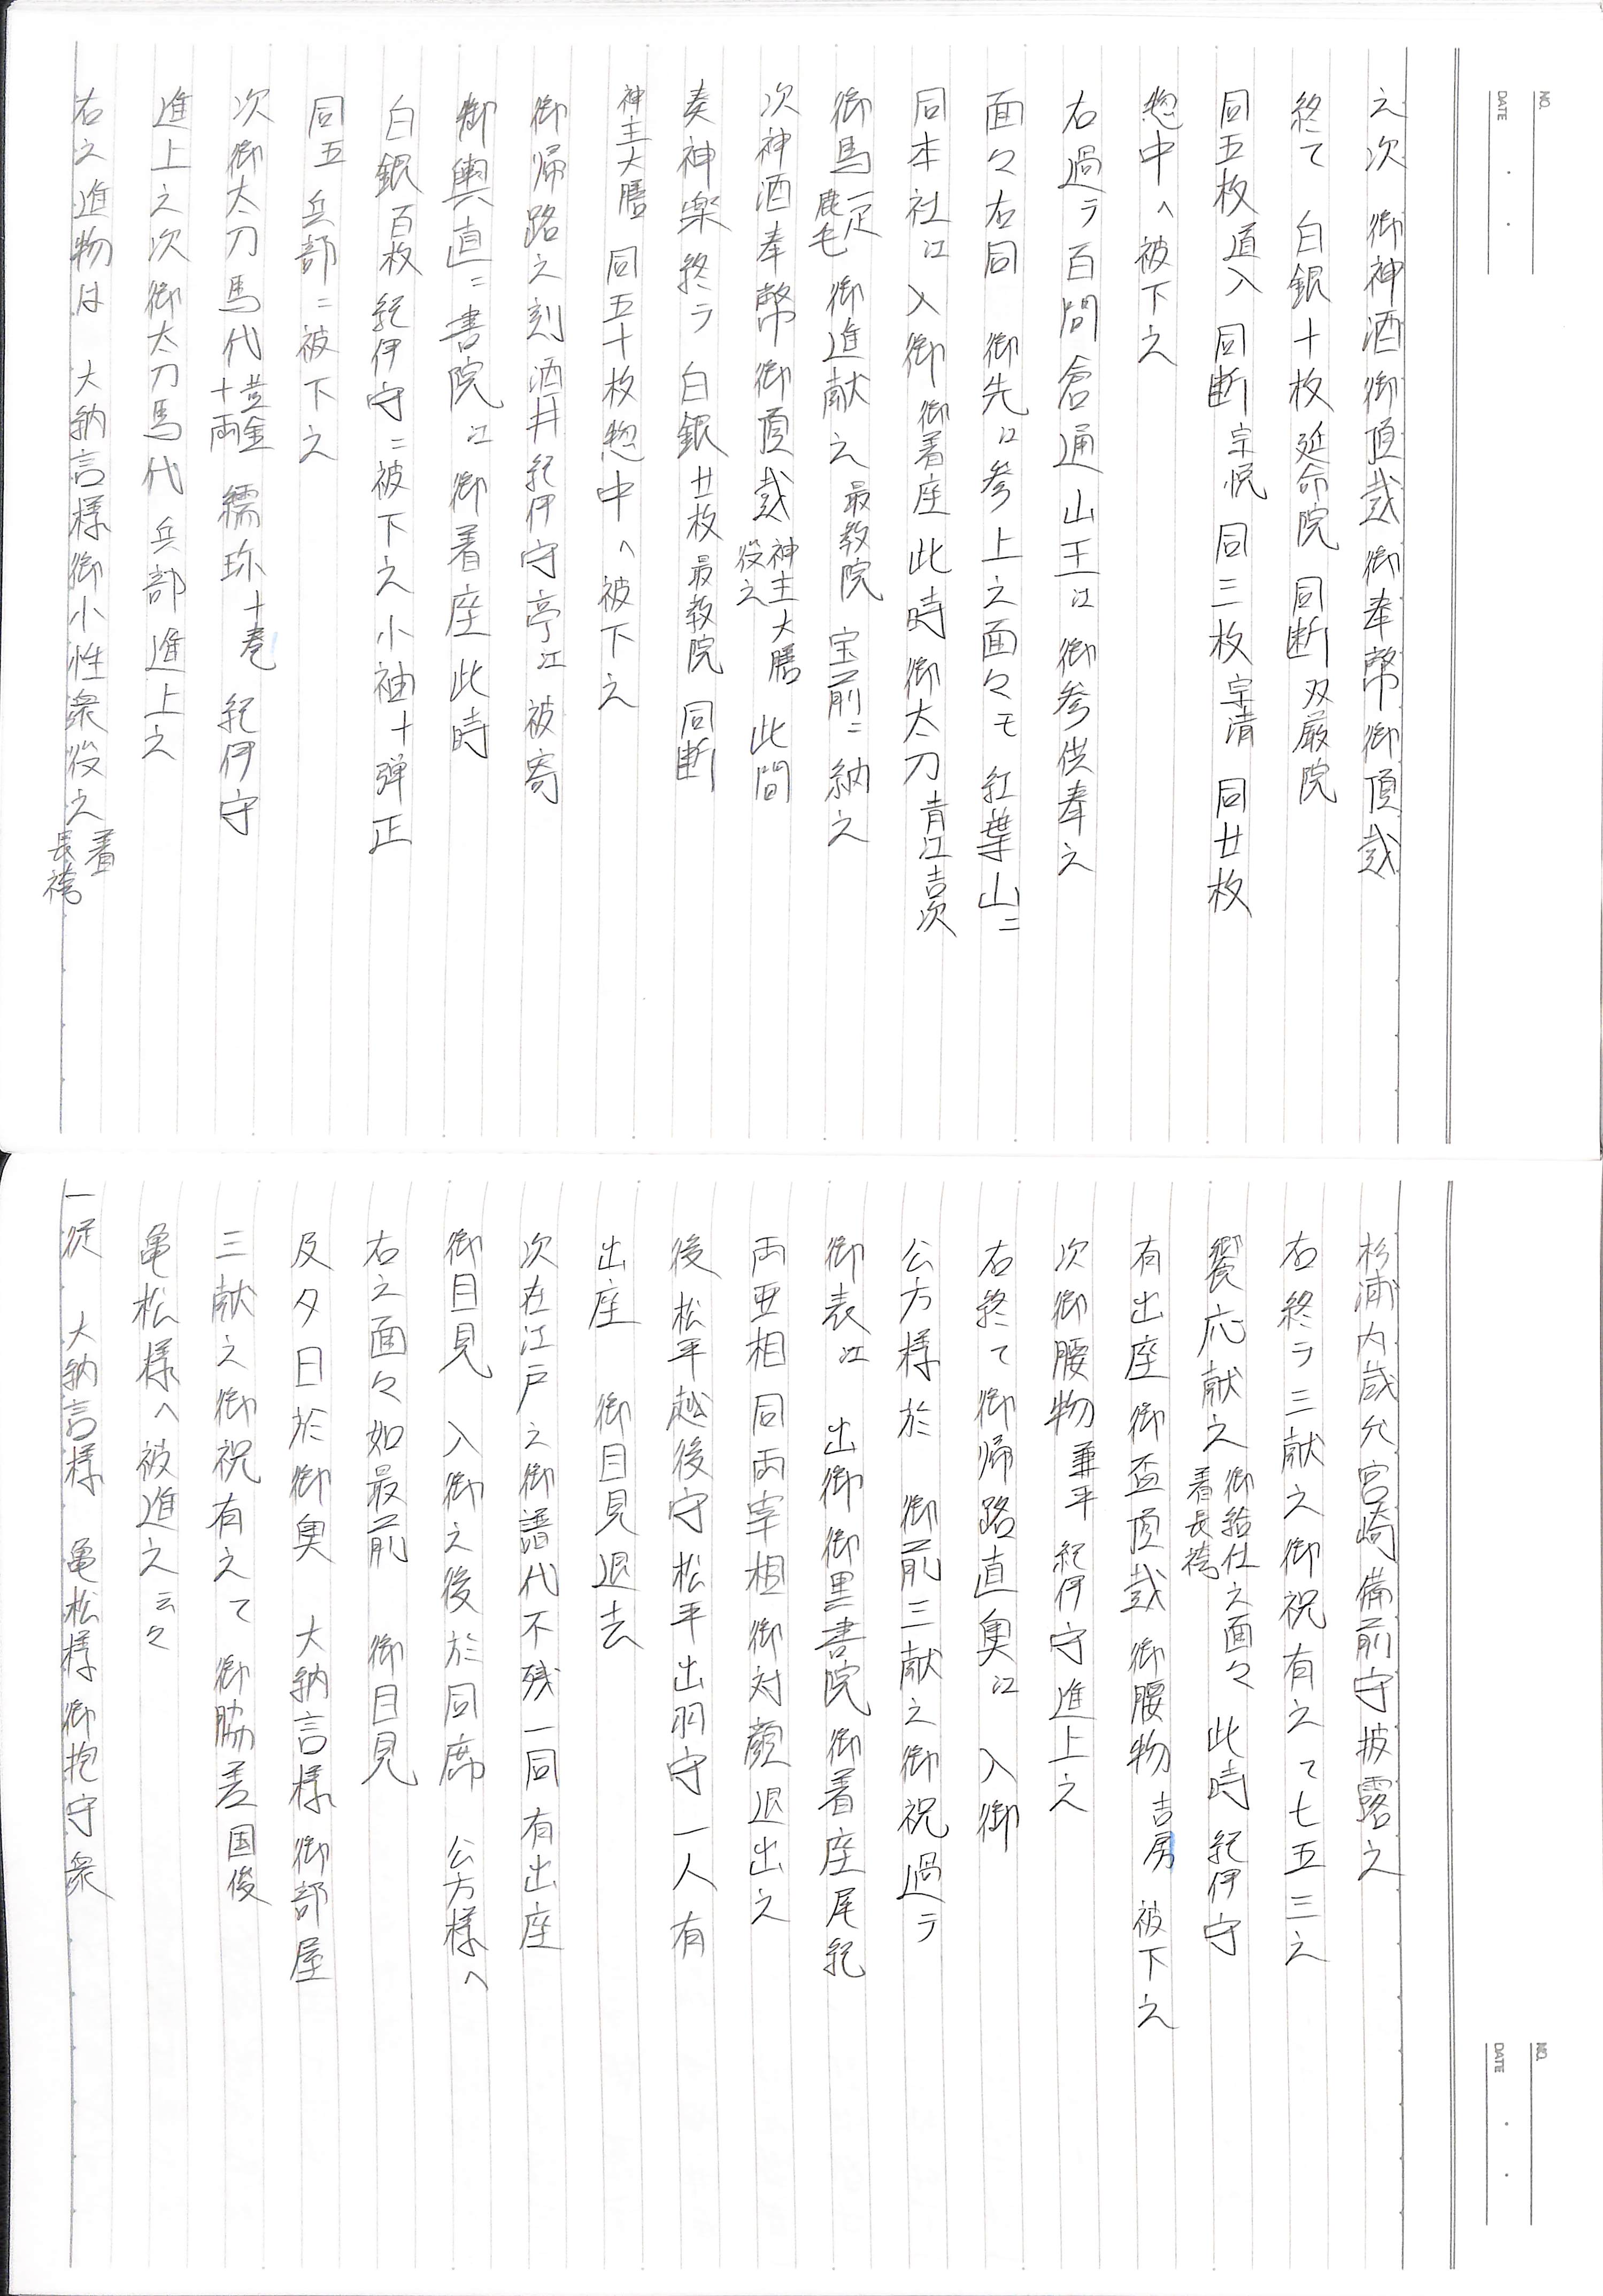 NO.
DATE
之次 御神酒御頂戴御奉幣御頂戴
終て 白銀十枚延命院 同断 双厳院
同五枚道入 同断宗悦 同三枚宗清 同廿枚
惣中へ被下之
右過ラ百間倉通山王江御参供奉之
面々右同 御先江参上之面々モ紅葉山ニ
同本社江入御御着座此時御太刀青江吉次
御馬一疋鹿毛 御進献之最教院 宝前ニ納之
次神酒奉幣御頂戴神主大膳役之 此間
奏神楽終ラ白銀廿枚最教院 同断
神主大膳 同五十枚惣中へ被下之
御帰路之刻酒井紀伊守亭江被寄
御輿直ニ書院江御着座此時
白銀百枚紀伊守ニ被下之小袖十弾正
同五兵部ニ被下之
次御太刀馬代黄金十両 繻珍十巻 紀伊守
進上之次御太刀馬代兵部進上之
右之進物は 大納言様御小性衆役之着長袴
NO.
DATE
杉浦内蔵允宮崎備前守披露之
右終ラ三献之御祝有之て七五三之
饗応献之御給仕之面々着長袴 此時紀伊守
有出座御盃頂戴 御腰物吉房 被下之
次御腰物兼平 紀伊守進上之
右終て御帰路直奥江 入御
公方様於 御前三献之御祝過ラ
御表江 出御御黒書院御着座尾紀
両亜相同両宰相御対顔退出之
後松平越後守松平出羽守一人有
出座 御目見退去
次在江戸之御譜代不残一同有出座
御目見 入御之後於同席 公方様へ
右之面々如最前 御目見
及夕日於御奥 大納言様御部屋
三献之御祝有之て御脇差国俊
亀松様へ被進之云々
一従 大納言様 亀松様御抱守衆